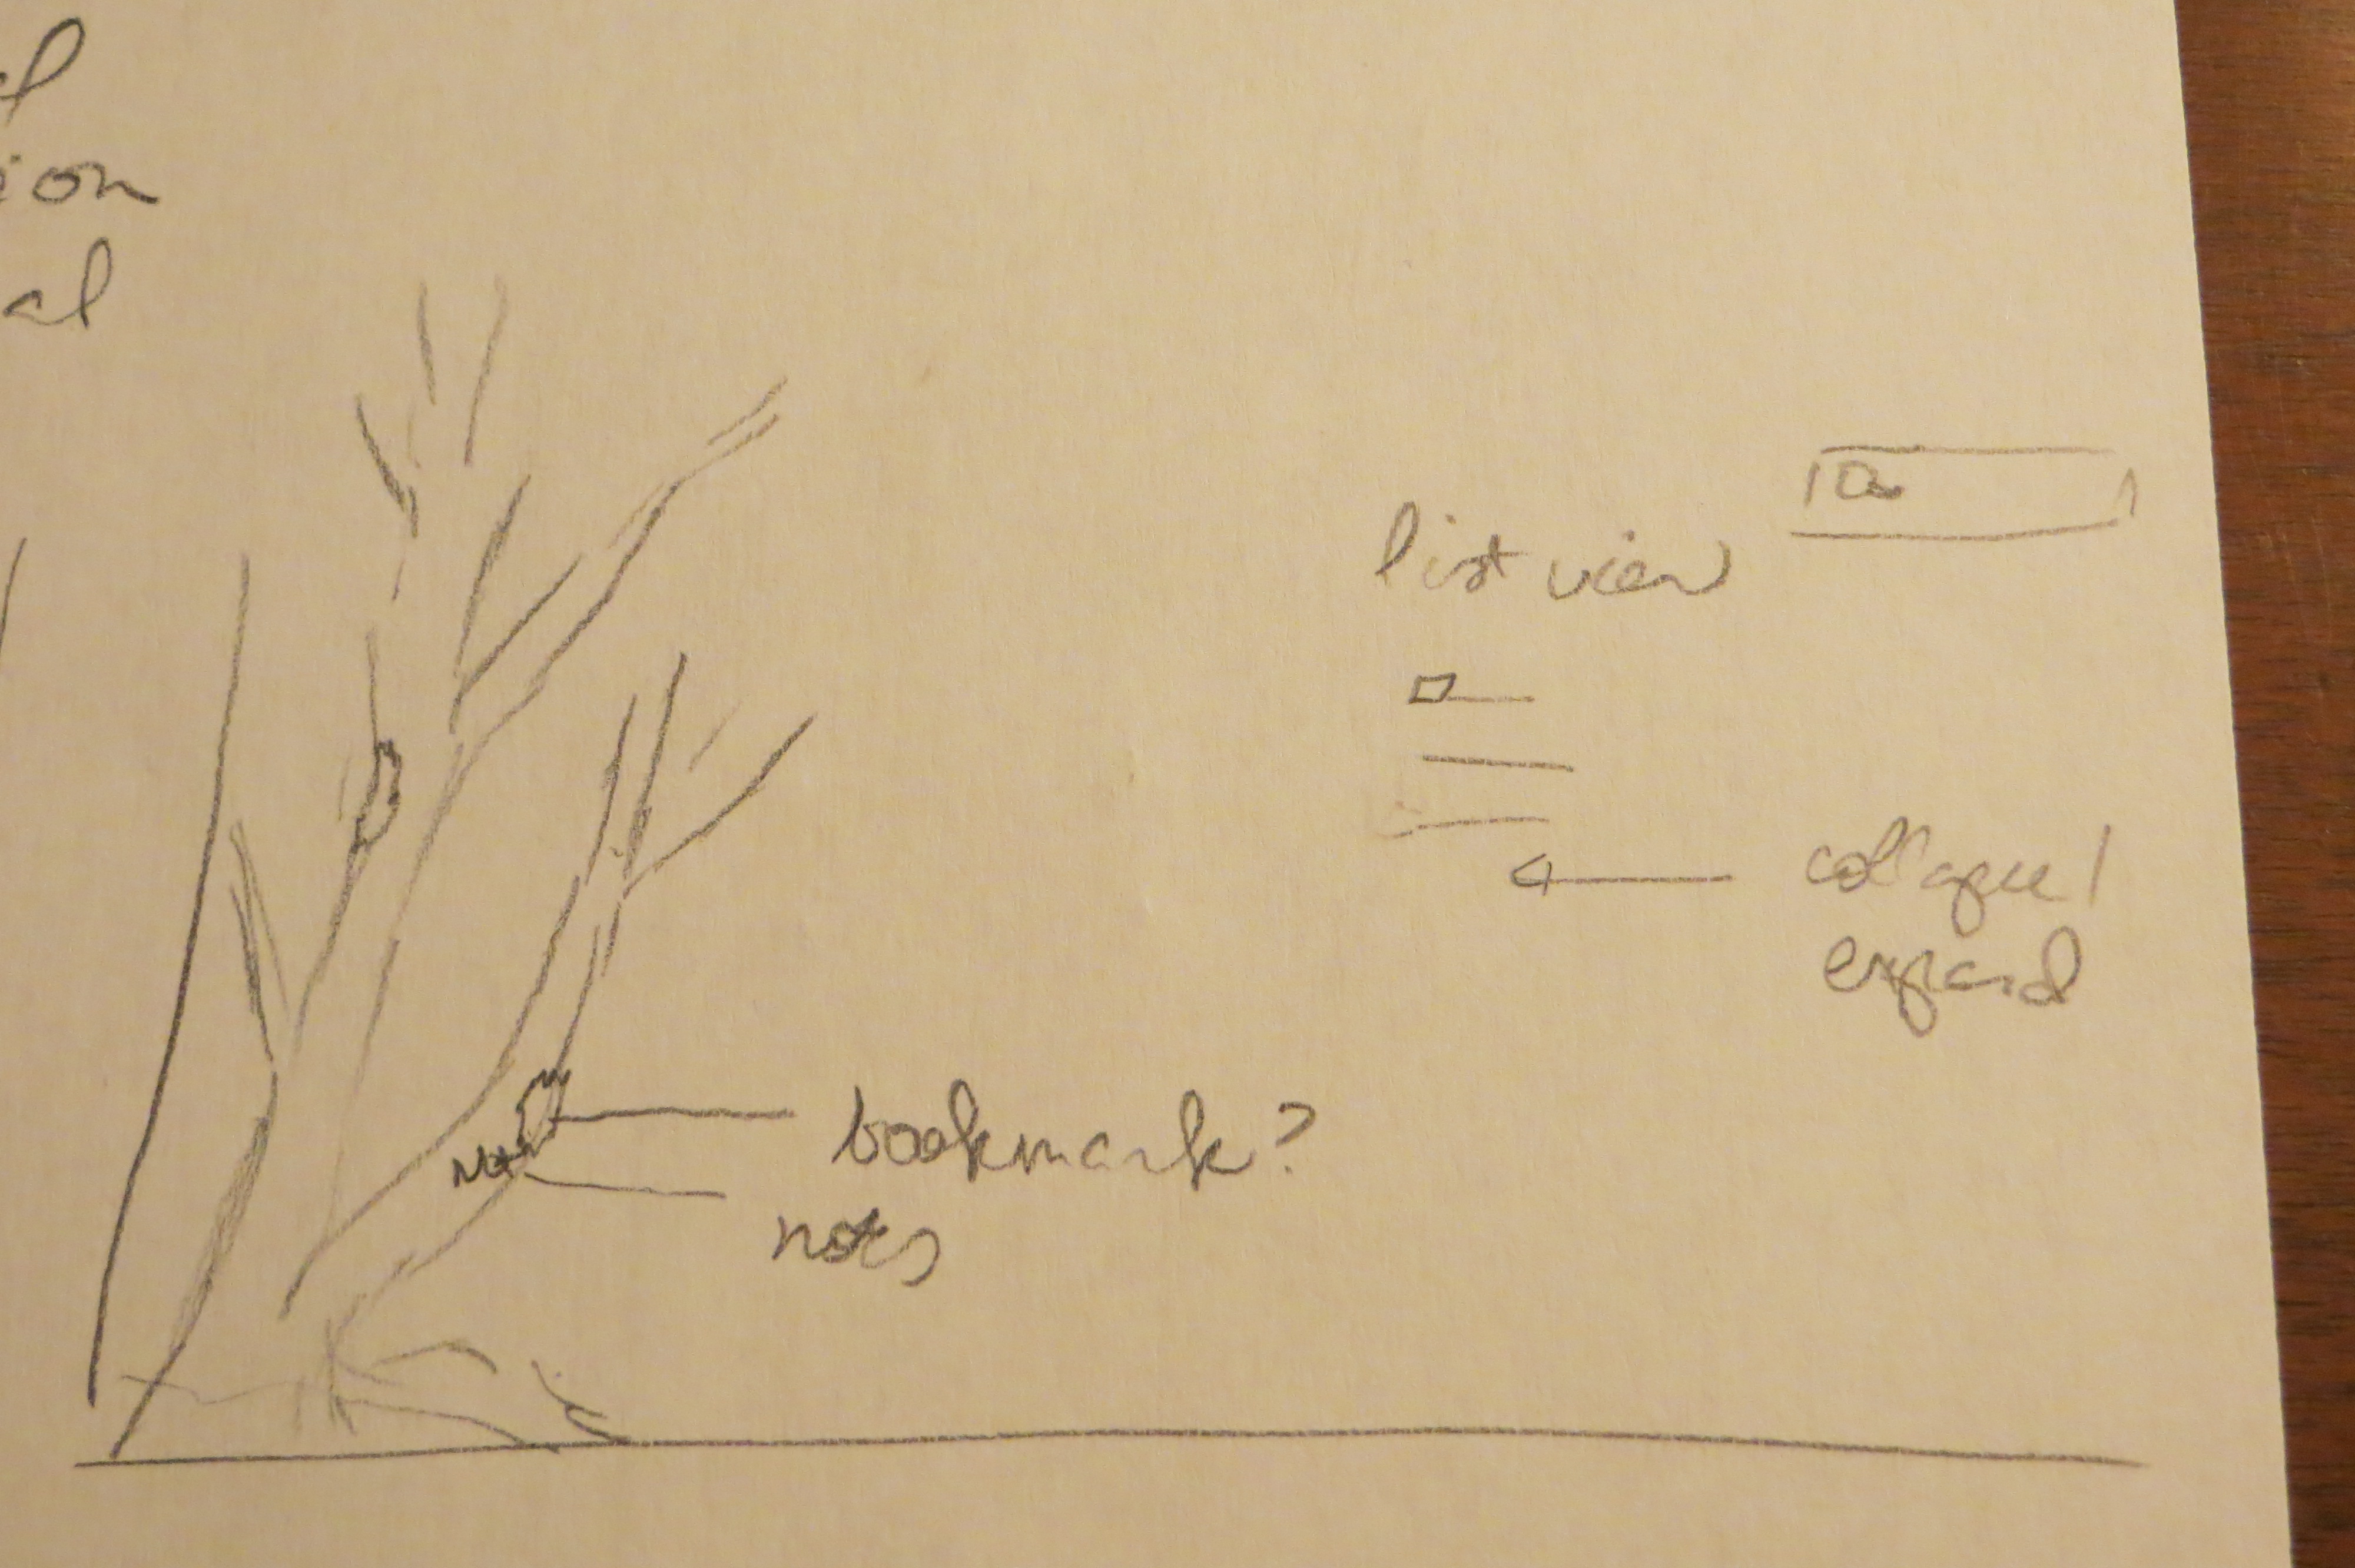 ion
al
list view
collapse /
expand
bookmark?
notes